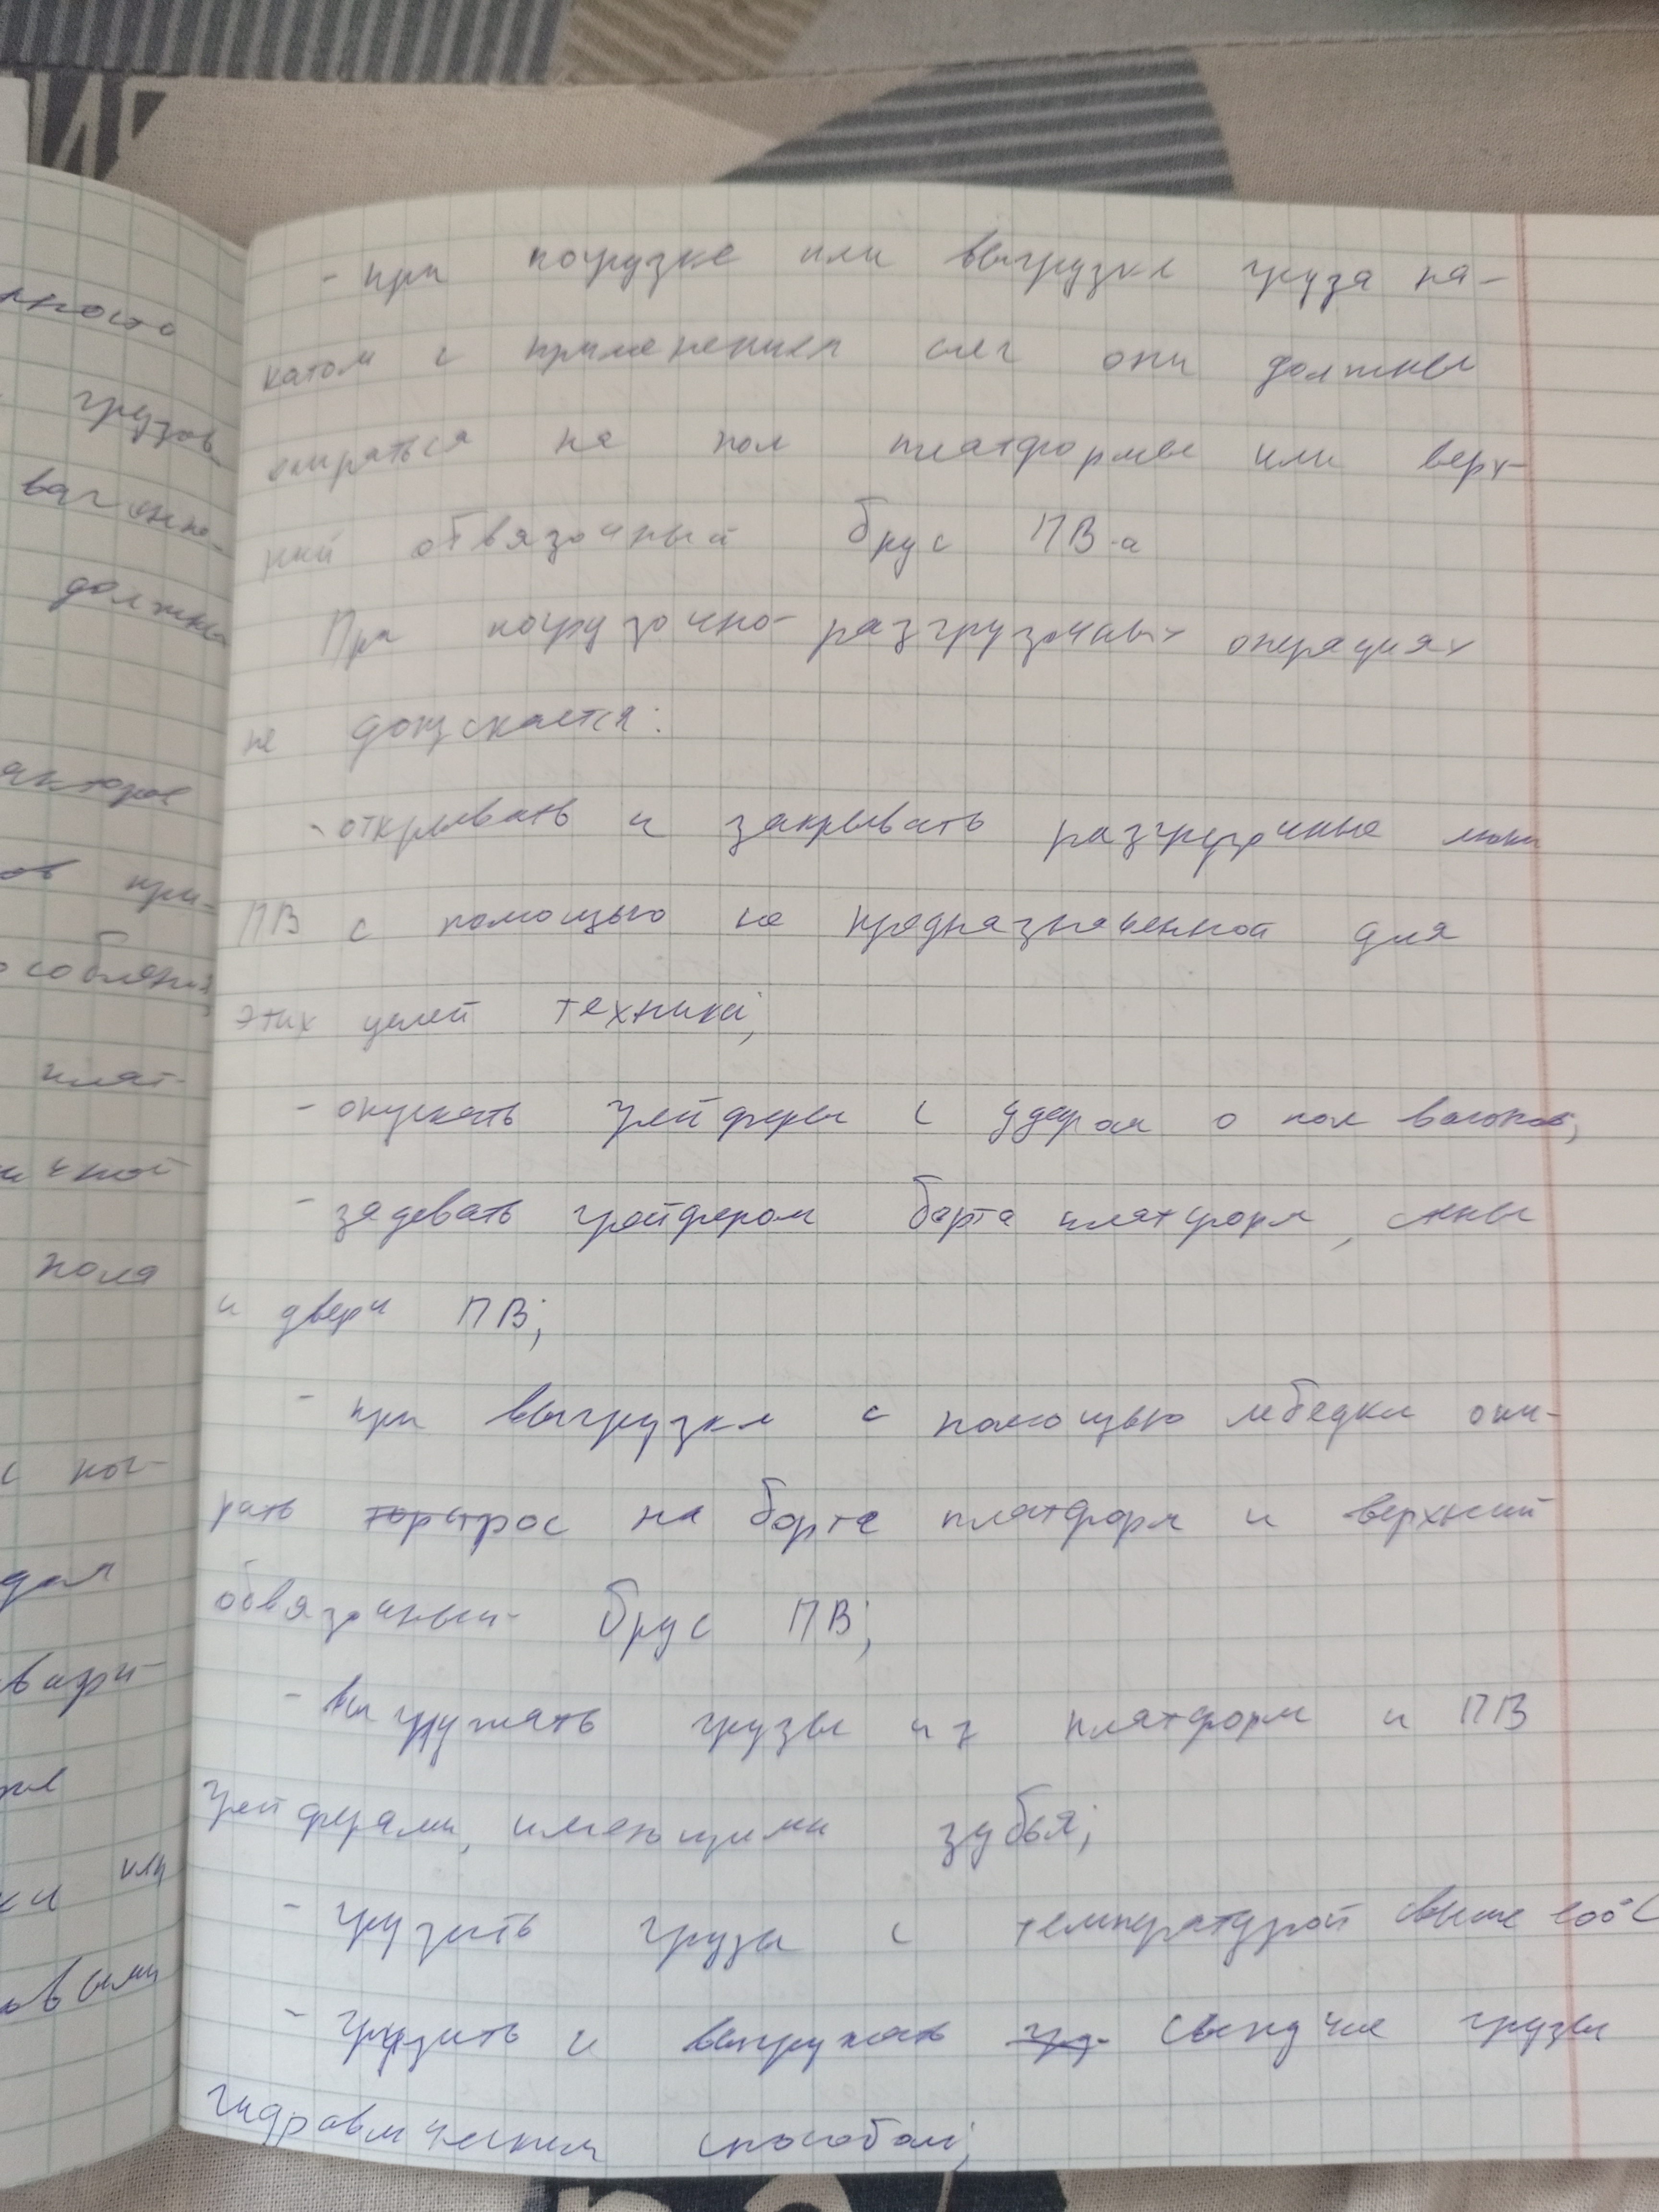 - при погрузке или выгрузке груза на-
катом с применением слег они должны
опираться на пол платформы или верх-
ний обвязочный брус ПВ-а
При погрузочно-разгрузочных операциях
не допускается:
- открывать и закрывать разгрузочные люки
ПВ с помощью не предназначенной для
этих целей техники;
- опускать грейферы с ударом о пол вагонов;
- задевать грейфером борта платформ, стены
и двери ПВ;
- при выгрузке с помощью лебедки опи-
рать трос на борта платформ и верхний
обвязочный брус ПВ;
- выгружать грузы из платформ и ПВ
грейферами, имеющими зубья;
- грузить грузы с температурой свыше 100°С
- грузить и выгружать сыпучие грузы
гидравлическим способом;
нность
грузов
вагонно-
должны
при-
особления
плат-
пола
с
или